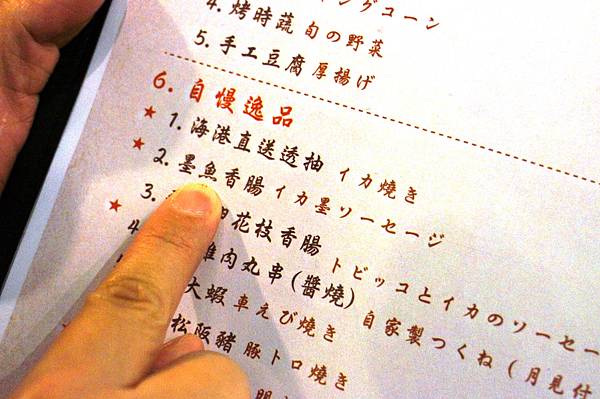 ングコーン
4. 烤時蔬 旬の野菜
5. 手工豆腐 厚揚げ
6. 自慢逸品
★ 1. 海港直送透抽 イカ焼き
★ 2. 墨魚香腸 イカ墨ソーセージ
3. 花枝香腸 トビッコとイカのソーセー
★ 4. 雞肉丸串(醬燒) 自家製つくね(月見付
大蝦 車えび焼き
松阪豬 豚トロ焼き